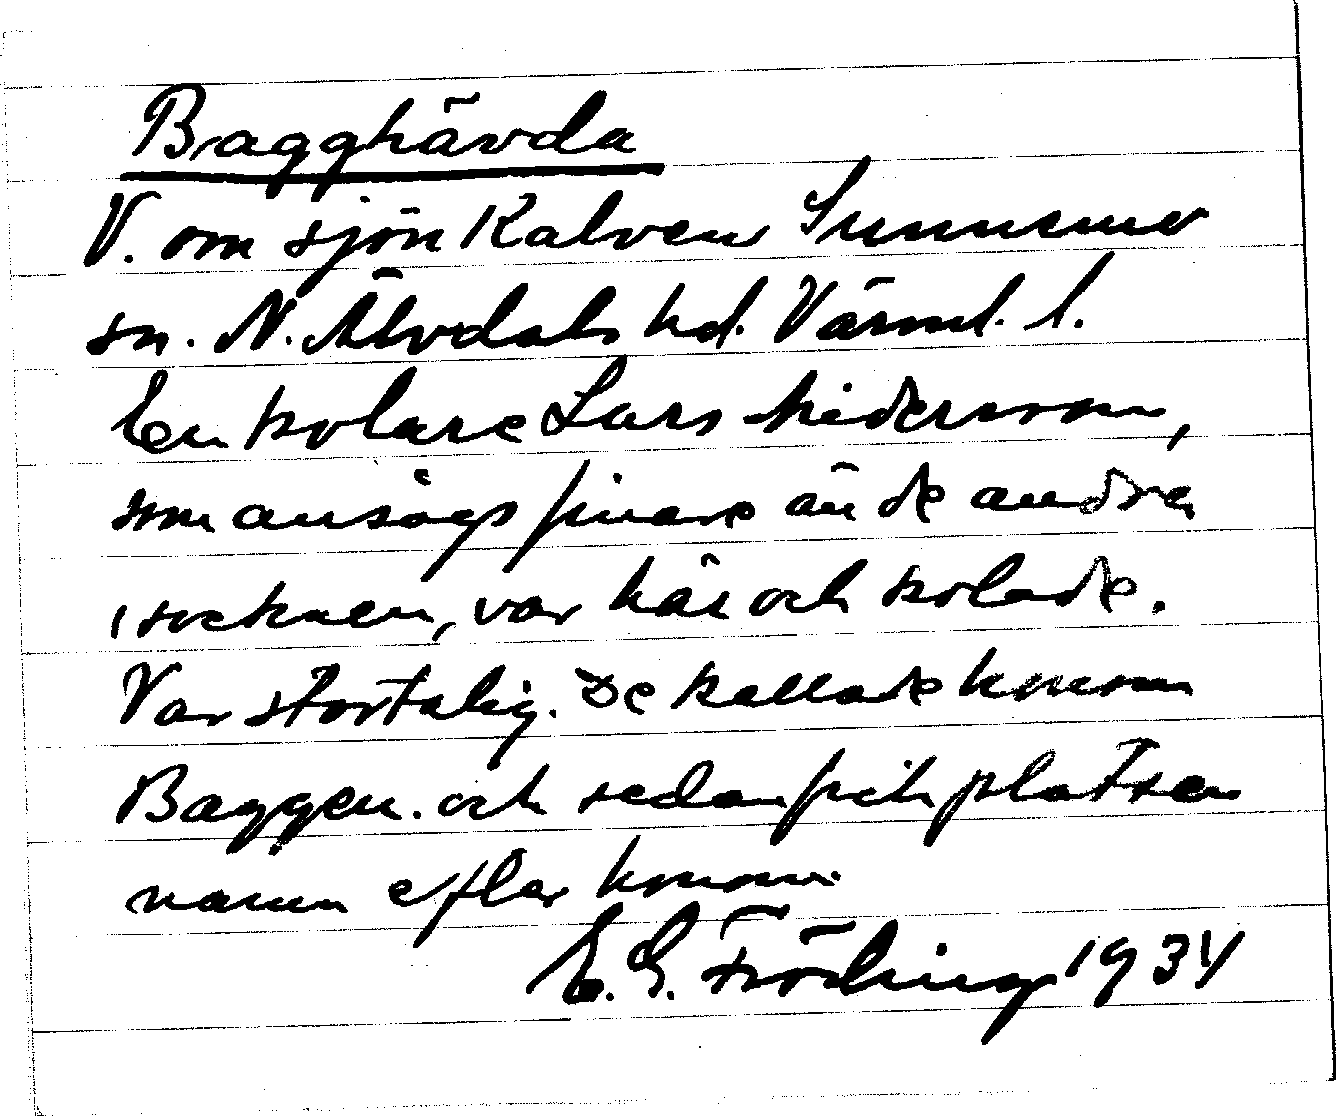 Bagghävda
V. om sjön Kalven Sunnemo
sn. N. Älvdals hd. Värml. l.
En kolare Lars Anderson,
som ansågs finare än de andra
i socknen, var här och kolade.
Var stortalig. De kallade honom
Baggen. och sedan fick platsen
namn efter honom.
E. G. Fröding 1934